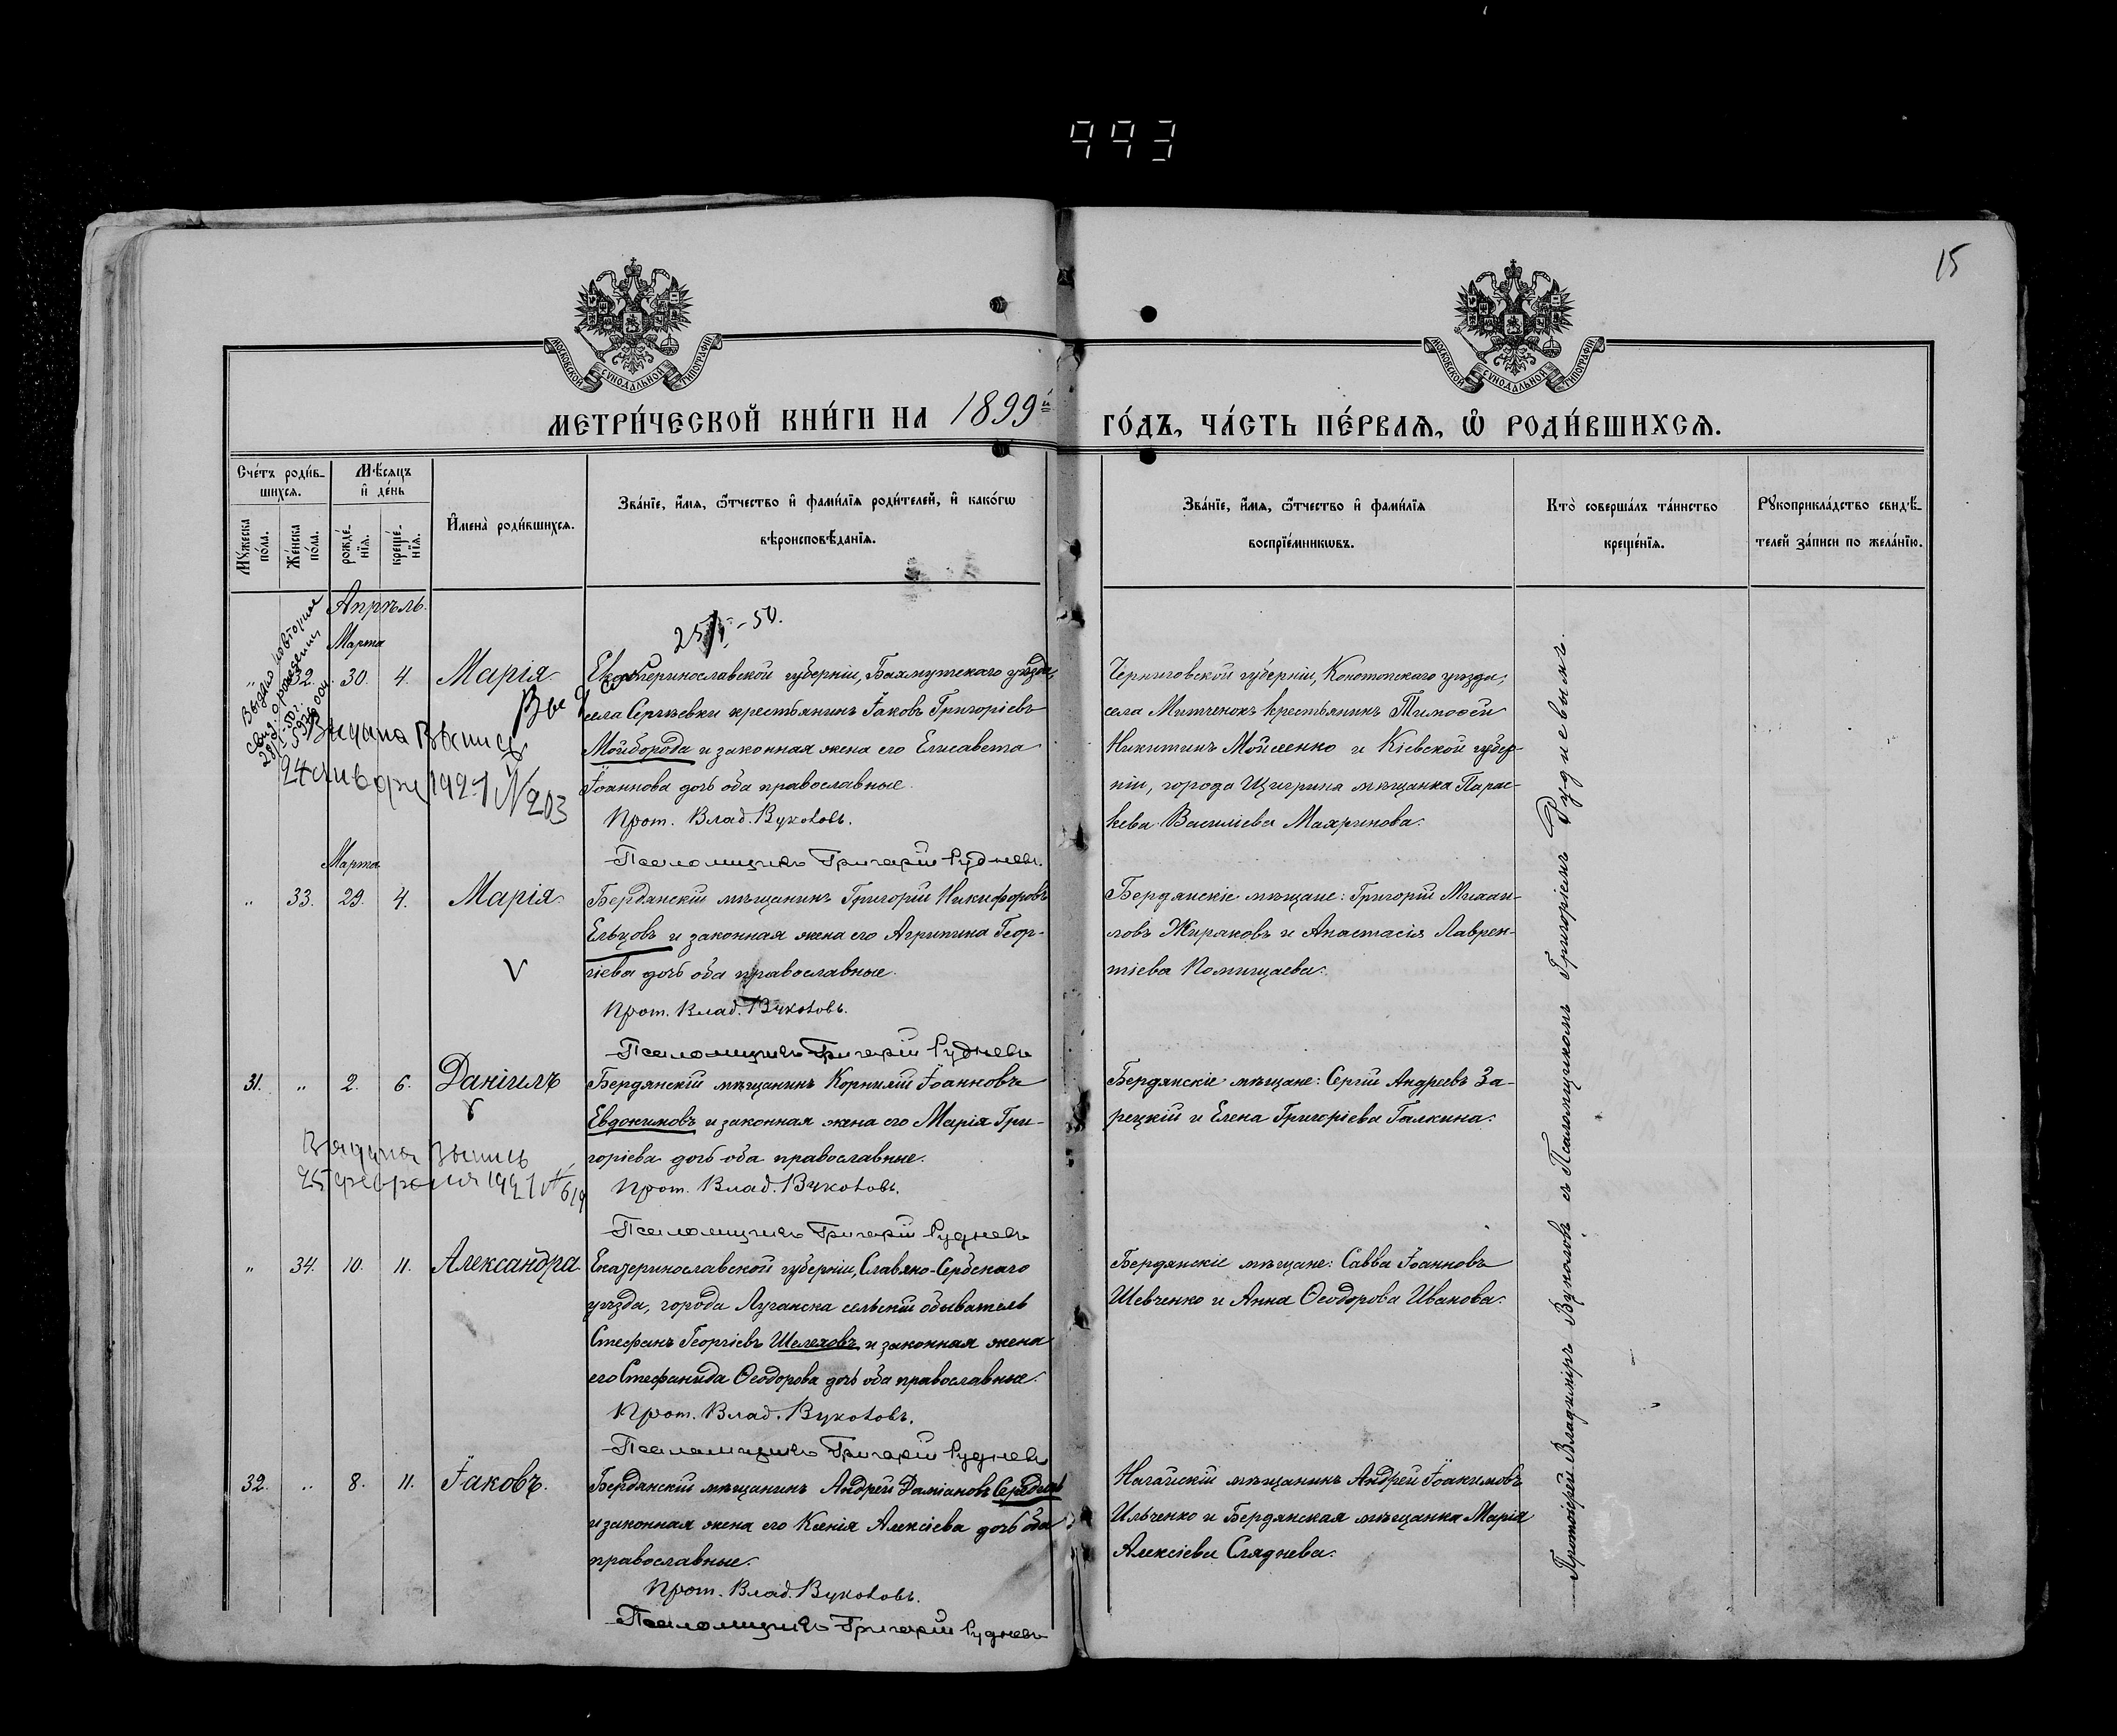 993
15
МОСКОВСКОЙ СѴНОДАЛЬНОЙ ТИПОГРАФІИ
МОСКОВСКОЙ СѴНОДАЛЬНОЙ ТИПОГРАФІИ
МЕТРИ́ЧЕСКОЙ КНИ́ГИ НА 1899й ГО́ДЪ, ЧА́СТЬ ПЕ́РВАѦ, Ѡ РОДИ́ВШИХСѦ.
Сче́тъ роди́в-
шихсѧ.
Мꙋ́жеска
по́ла.
Же́нска
по́ла.
Мѣ́сѧцъ
и҆ де́нь
рожде́-
нїѧ.
креще́-
нїѧ.
И҆мена̀ роди́вшихсѧ.
Зва́нїе, и҆́мѧ, ѻ҆́тчество и҆ фами́лїѧ роди́телей, и҆ како́гѡ
вѣроисповѣ́данїѧ.
Зва́нїе, и҆́мѧ, ѻ҆́тчество и҆ фами́лїѧ
воспрїе́мникѡвъ.
Кто̀ соверша́лъ та́инство
креще́нїѧ.
Рꙋкоприкла́дство свидѣ́-
телей за́писи по жела́нїю.
Апрѣль.
Марта
" 32. 30. 4. Марія
Екатеринославской губерніи, Бахмутскаго уѣзда,
села Сергѣевки крестьянинъ Іаковъ Григоріевъ
Мойборода и законная жена его Елисавета
Іоаннова дочь оба православные.
Прот. Влад. Вуколовъ.
Псаломщикъ Григорій Рудневъ.
Черниговской губерніи, Конотопскаго уѣзда,
села Митченокъ крестьянинъ Тимоѳей
Никитинъ Мойсеенко и Кіевской губер-
ніи, города Щигрина мѣщанка Парас-
кева Василіева Махринова.
Выдано повторное
свид. о рождении
Выдана Выпись
24 января 1921 № 203
Марта
" 33. 29. 4. Марія
Бердянскій мѣщанинъ Григорій Никифоровъ
Ельцовъ и законная жена его Агрипина Геор-
гіева дочь оба православные.
Прот. Влад. Вуколовъ.
Псаломщикъ Григорій Рудневъ
Бердянскіе мѣщане: Григорій Михаи-
ловъ Жиряковъ и Анастасія Лаврен-
тіева Помищаева.
V
31. " 2. 6. Даніилъ
Бердянскій мѣщанинъ Корнилій Іоанновъ
Евдокимовъ и законная жена его Марія Гри-
горіева дочь оба православные.
Прот. Влад. Вуколовъ.
Псаломщикъ Григорій Рудневъ
Бердянскіе мѣщане: Сергій Андреевъ За-
рецкій и Елена Григоріева Галкина.
Выдана Выпись
25 февраля 1921 № 619
" 34. 10. 11. Александра
Екатеринославской губерніи, Славяно-Сербскаго
уѣзда, города Луганска сельскій обыватель
Стефанъ Георгіевъ Шелеховъ и законная жена
его Стефанида Ѳеодорова дочь оба православные.
Прот. Влад. Вуколовъ.
Псаломщикъ Григорій Рудневъ
Бердянскіе мѣщане: Савва Іоанновъ
Шевченко и Анна Ѳеодорова Иванова.
32. " 8. 11. Іаковъ.
Бердянскій мѣщанинъ Андрей Даміановъ
и законная жена его Ксенія Алексіева дочь оба
православные.
Прот. Влад. Вуколовъ.
Псаломщикъ Григорій Рудневъ
Ногайскій мѣщанинъ Андрей Іоакимовъ
Ильченко и Бердянская мѣщанка Марія
Алексіева Сляднева.
Протоіерей Владимиръ Вуколовъ съ Псаломщикомъ Григоріемъ Рудневымъ.